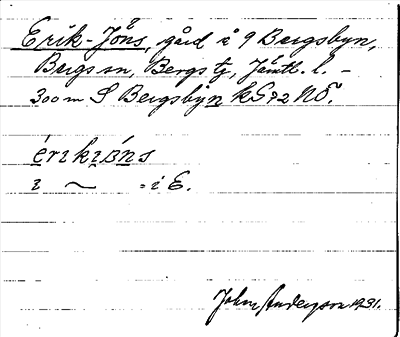 Erik-Jöns, gård i 9 Bergsbyn,
Bergs sn, Bergs tg, Jämtl. l. –
300 m S Bergsbyn kS72NÖ.
érikᴉöns
i ~ = i E.
John Anderson 1931.